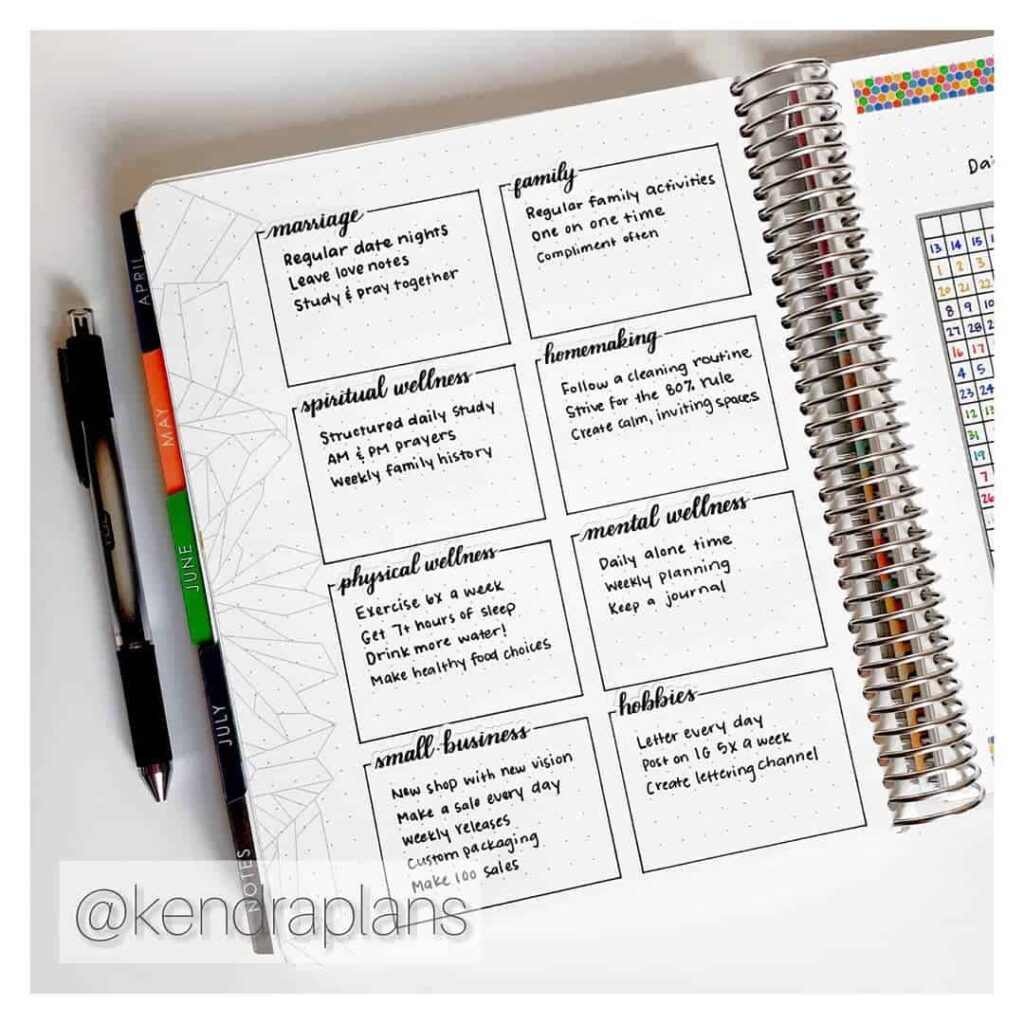 marriage
Regular date nights
Leave love notes
Study & pray together
family
Regular family activities
One on one time
Compliment often
spiritual wellness
Structured daily study
AM & PM prayers
Weekly family history
homemaking
Follow a cleaning routine
Strive for the 80% rule
Create calm, inviting spaces
physical wellness
Exercise 6x a week
Get 7+ hours of sleep
Drink more water!
Make healthy food choices
mental wellness
Daily alone time
Weekly planning
Keep a journal
small business
New shop with new vision
Make a sale every day
Weekly releases
Custom packaging
Make 100 sales
hobbies
Letter every day
Post on IG 5X a week
Create lettering channel
APRIL
MAY
JUNE
JULY
NOTES
13 14 15
1 2 3
20 21 22
8 9 10
27 28
16 17
4 5
23 24
12 13
31
19
7
26
@kendraplans